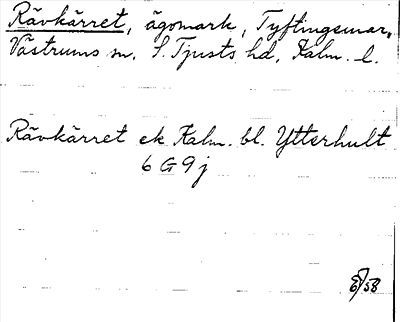 Rävkärret, ägomark, Tyftingsmar,
Västrums sn, S. Tjusts hd, Kalm. l.
Rävkärret ek Kalm. bl. Ytterhult
6 G 9 j
/58